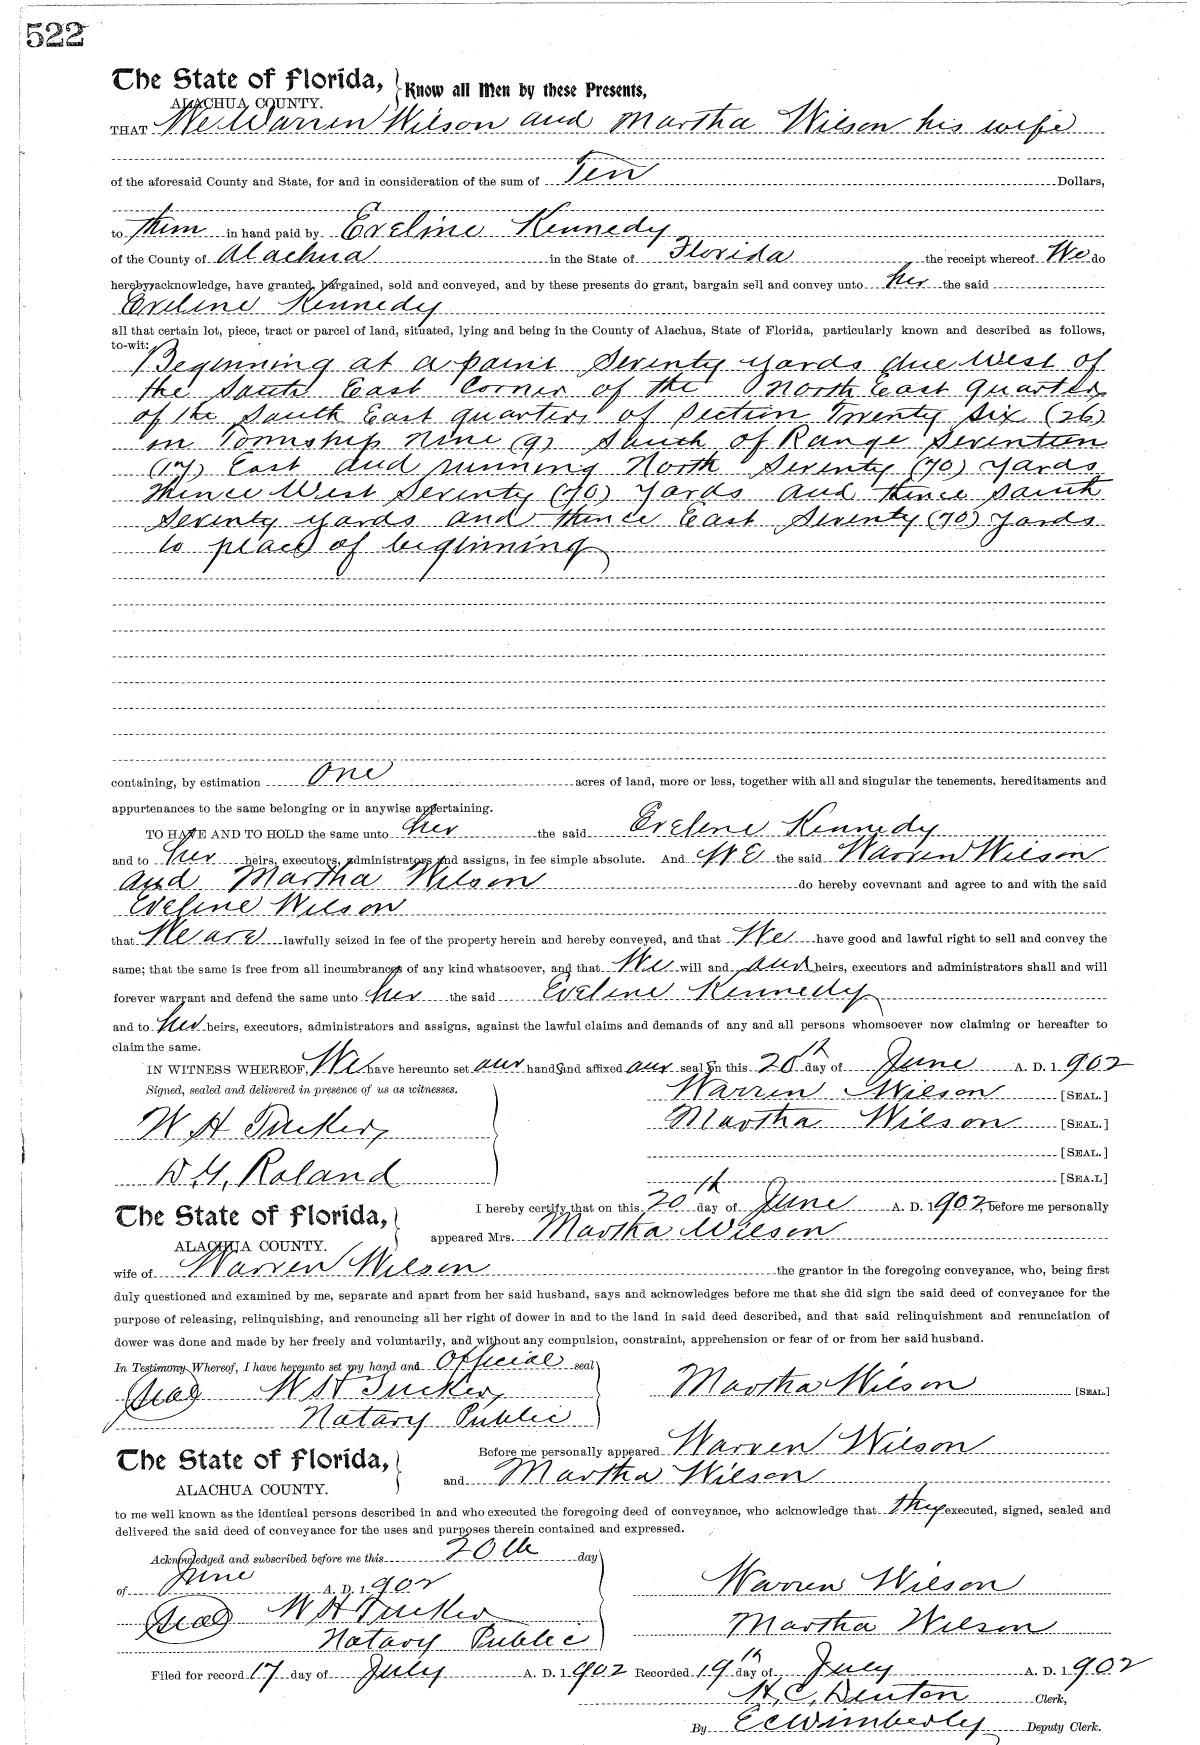 522
The State of Florida, Know all Men by these Presents,
ALACHUA COUNTY.
THAT We Warren Wilson and Martha Wilson his wife
of the aforesaid County and State, for and in consideration of the sum of Ten Dollars,
to them in hand paid by Eveline Kennedy
of the County of Alachua in the State of Florida the receipt whereof We do
hereby acknowledge, have granted, bargained, sold and conveyed, and by these presents do grant, bargain sell and convey unto her the said
Eveline Kennedy
all that certain lot, piece, tract or parcel of land, situated, lying and being in the County of Alachua, State of Florida, particularly known and described as follows,
to-wit:
Beginning at a point Seventy yards due West of
the South East Corner of the North East quarter
of the South East quarter, of Section Twenty Six (26)
in Township Nine (9) South of Range Seventeen
(17) East and running North Seventy (70) Yards
thence West Seventy (70) Yards and thence South
Seventy yards and thence East Seventy (70) Yards
to place of beginning
containing, by estimation One acres of land, more or less, together with all and singular the tenements, hereditaments and
appurtenances to the same belonging or in anywise appertaining.
TO HAVE AND TO HOLD the same unto her the said Eveline Kennedy
and to her heirs, executors, administrators and assigns, in fee simple absolute. And We the said Warren Wilson
and Martha Wilson do hereby covevnant and agree to and with the said
Eveline Wilson
that We are lawfully seized in fee of the property herein and hereby conveyed, and that We have good and lawful right to sell and convey the
same; that the same is free from all incumbrances of any kind whatsoever, and that We will and our heirs, executors and administrators shall and will
forever warrant and defend the same unto her the said Eveline Kennedy
and to her heirs, executors, administrators and assigns, against the lawful claims and demands of any and all persons whomsoever now claiming or hereafter to
claim the same.
IN WITNESS WHEREOF, We have hereunto set our hands and affixed our seals on this 20th day of June A. D. 1902
Signed, sealed and delivered in presence of us as witnesses. Warren Wilson [SEAL.]
W H Tucker, Martha Wilson [SEAL.]
[SEAL.]
D. G. Roland [SEA.L]
The State of Florida, I hereby certify that on this 20th day of June A. D. 1902, before me personally
ALACHUA COUNTY. appeared Mrs. Martha Wilson
wife of Warren Wilson the grantor in the foregoing conveyance, who, being first
duly questioned and examined by me, separate and apart from her said husband, says and acknowledges before me that she did sign the said deed of conveyance for the
purpose of releasing, relinquishing, and renouncing all her right of dower in and to the land in said deed described, and that said relinquishment and renunciation of
dower was done and made by her freely and voluntarily, and without any compulsion, constraint, apprehension or fear of or from her said husband.
In Testimony Whereof, I have hereunto set my hand and Official seal
Seal W H Tucker, Martha Wilson [SEAL.]
Notary Public
The State of Florida, Before me personally appeared Warren Wilson
ALACHUA COUNTY. and Martha Wilson
to me well known as the identical persons described in and who executed the foregoing deed of conveyance, who acknowledge that they executed, signed, sealed and
delivered the said deed of conveyance for the uses and purposes therein contained and expressed.
Acknowledged and subscribed before me this 20th day
of June A. D. 1902 Warren Wilson
Seal W H Tucker Martha Wilson
Notary Public
Filed for record 17 day of July A. D. 1902 Recorded 19th day of July A. D. 1902
H. C. Denton Clerk,
By E C Wimberly Deputy Clerk.